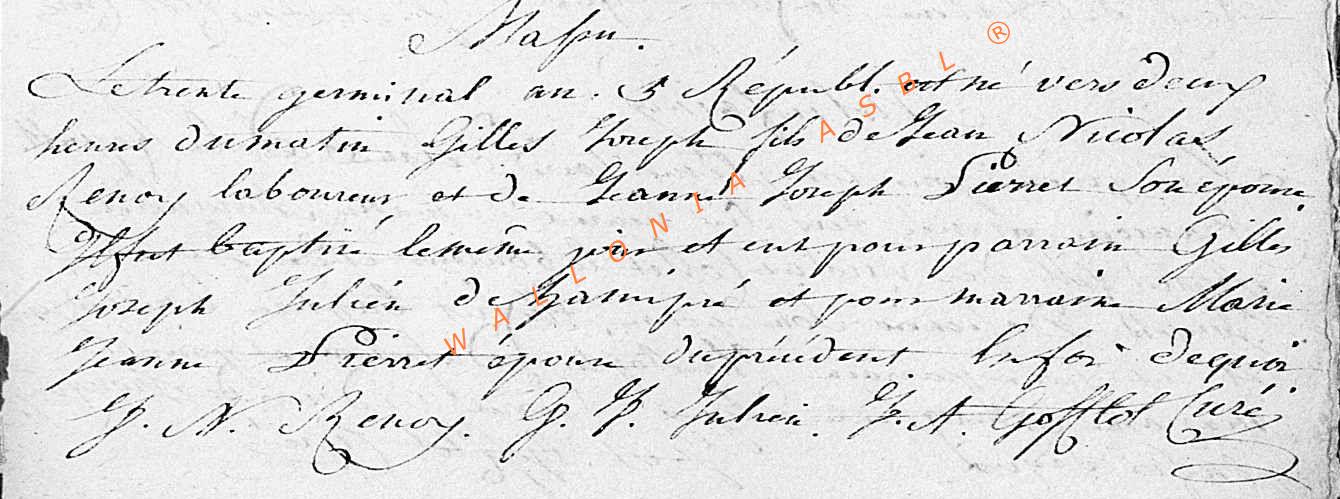 Massu.
Le trente germinal an. 5 Républ. est né vers deux
heures du matin Gilles Joseph fils de Jean Nicolas
Renoy laboureur et de Jeanne Joseph Pierret son épouse
Il fut baptisé le même jour et eut pour parrain Gilles
Joseph Julién de Hamipré et pour marraine Marie
Jeanne Pierret épouse du précédent. En foi de quoi
J. N. Renoy. G. J. Julien. J. A. Gofflot Curé
WALLONIA ASBL ®